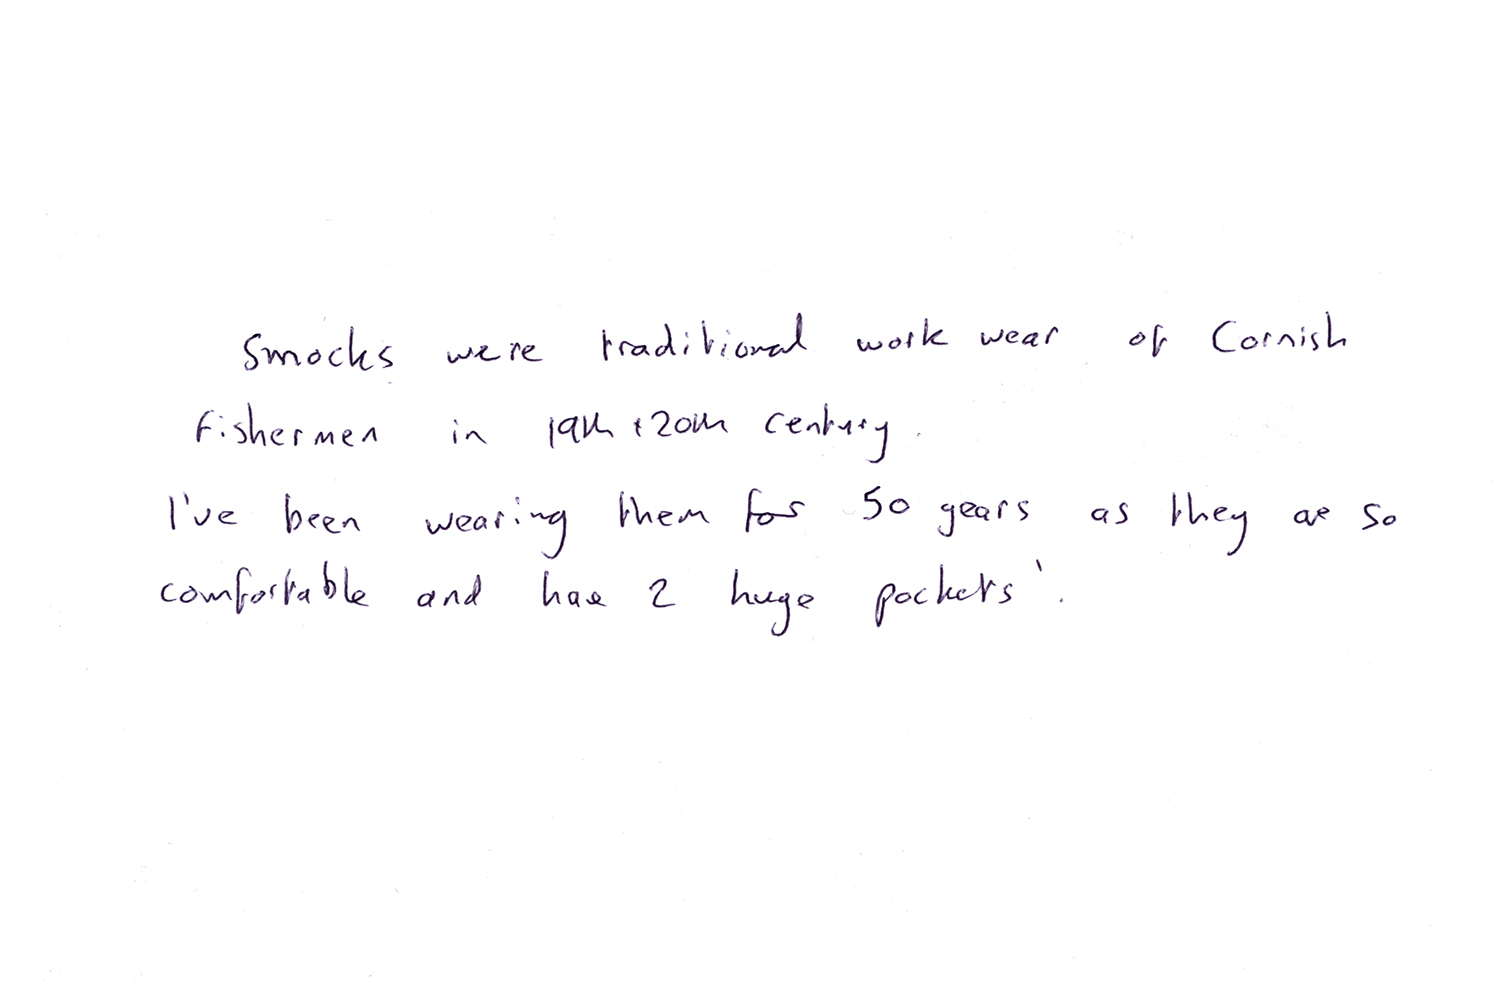 Smocks were traditional work wear of Cornish
Fishermen in 19th + 20th century.
I've been wearing them for 50 years as they are so
comfortable and have 2 huge pockets'.